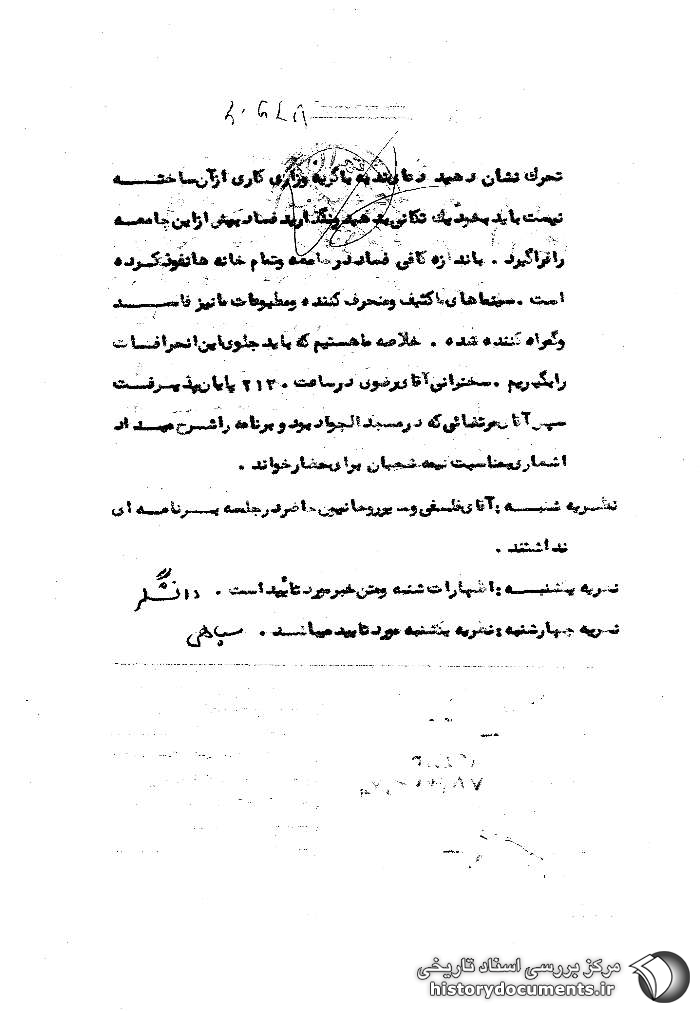 تحرك نشان دهید دعای ندبه با گریه و زاری کاری از آن ساخته
نیست باید بخود یك تکانی بدهید و نگذارید فساد بیش از این جامعه
را فراگیرد . باندازه کافی فساد در جامعه و تمام خانه ها نفوذ کرده
است . سینماهای ما کثیف و منحرف کننده و مطبوعات ما نیز فاسد
و گمراه کننده شده . خلاصه ما هستیم که باید جلوی این انحرافات
را بگیریم . سخنرانی آقای رضوی در ساعت ۲۱۳۰ پایان پذیرفت
سپس آقای مرتضائی که در مسجد الجواد بود و برنامه را شرح میداد
اشعاری بمناسبت نیمه شعبان برای حضار خواند .
نظریه شنبه : آقای فلسفی و سایر روحانیون حاضر در جلسه برنامه ای
نداشتند .
نظریه یکشنبه : اظهارات شنبه و متن خبر مورد تأیید است . دانشگر
نظریه چهارشنبه : نظریه یکشنبه مورد تایید میباشد . سپاهی
مرکز بررسی اسناد تاریخی
historydocuments.ir